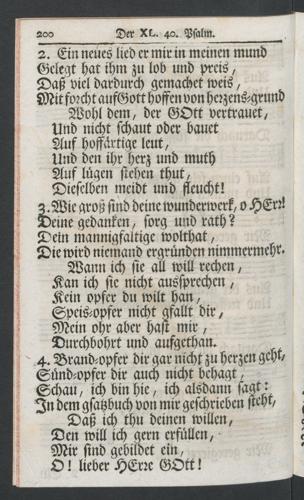 200 Der XL. 40. Psalm.
2. Ein neues lied er mir in meinen mund
Gelegt hat ihm zu lob und preis,
Daß viel dardurch gemachet weis,
Mit forcht auf Gott hoffen von herzens-grund
Wohl dem, der GOtt vertrauet,
Und nicht schaut oder bauet
Auf hoffärtige leut,
Und den ihr herz und muth
Auf lügen stehen thut,
Dieselben meidt und fleucht!
3. Wie groß sind deine wunderwerk, o HErr!
Deine gedanken, sorg und rath?
Dein mannigfaltige wolthat,
Die wird niemand ergründen nimmermehr.
Wann ich sie all will rechen,
Kan ich sie nicht aussprechen,
Kein opfer du wilt han,
Speis-opfer nicht gfallt dir,
Mein ohr aber hast mir,
Durchbohrt und aufgethan.
4. Brand-opfer dir gar nicht zu herzen geht,
Sünd-opfer dir auch nicht behagt,
Schau, ich bin hie, ich alsdann sagt:
In dem gsatzbuch von mir geschrieben steht,
Daß ich thu deinen willen,
Den will ich gern erfüllen,
Mir sind gebildet ein,
O! lieber HErre GOtt!